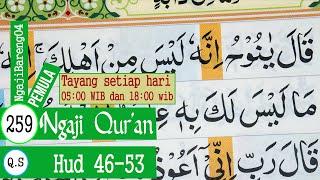 NgajiBareng04
PEMULA
Tayang setiap hari
05:00 WIB dan 18:00 wib
259 Ngaji Qur'an
Q.S Hud 46-53
قَالَ يٰنُوْحُ اِنَّهٗ لَيْسَ مِنْ اَهْلِكَ
مَا لَيْسَ لَكَ بِهٖ
قَالَ رَبِّ اِنِّيْٓ اَعُوْذُ